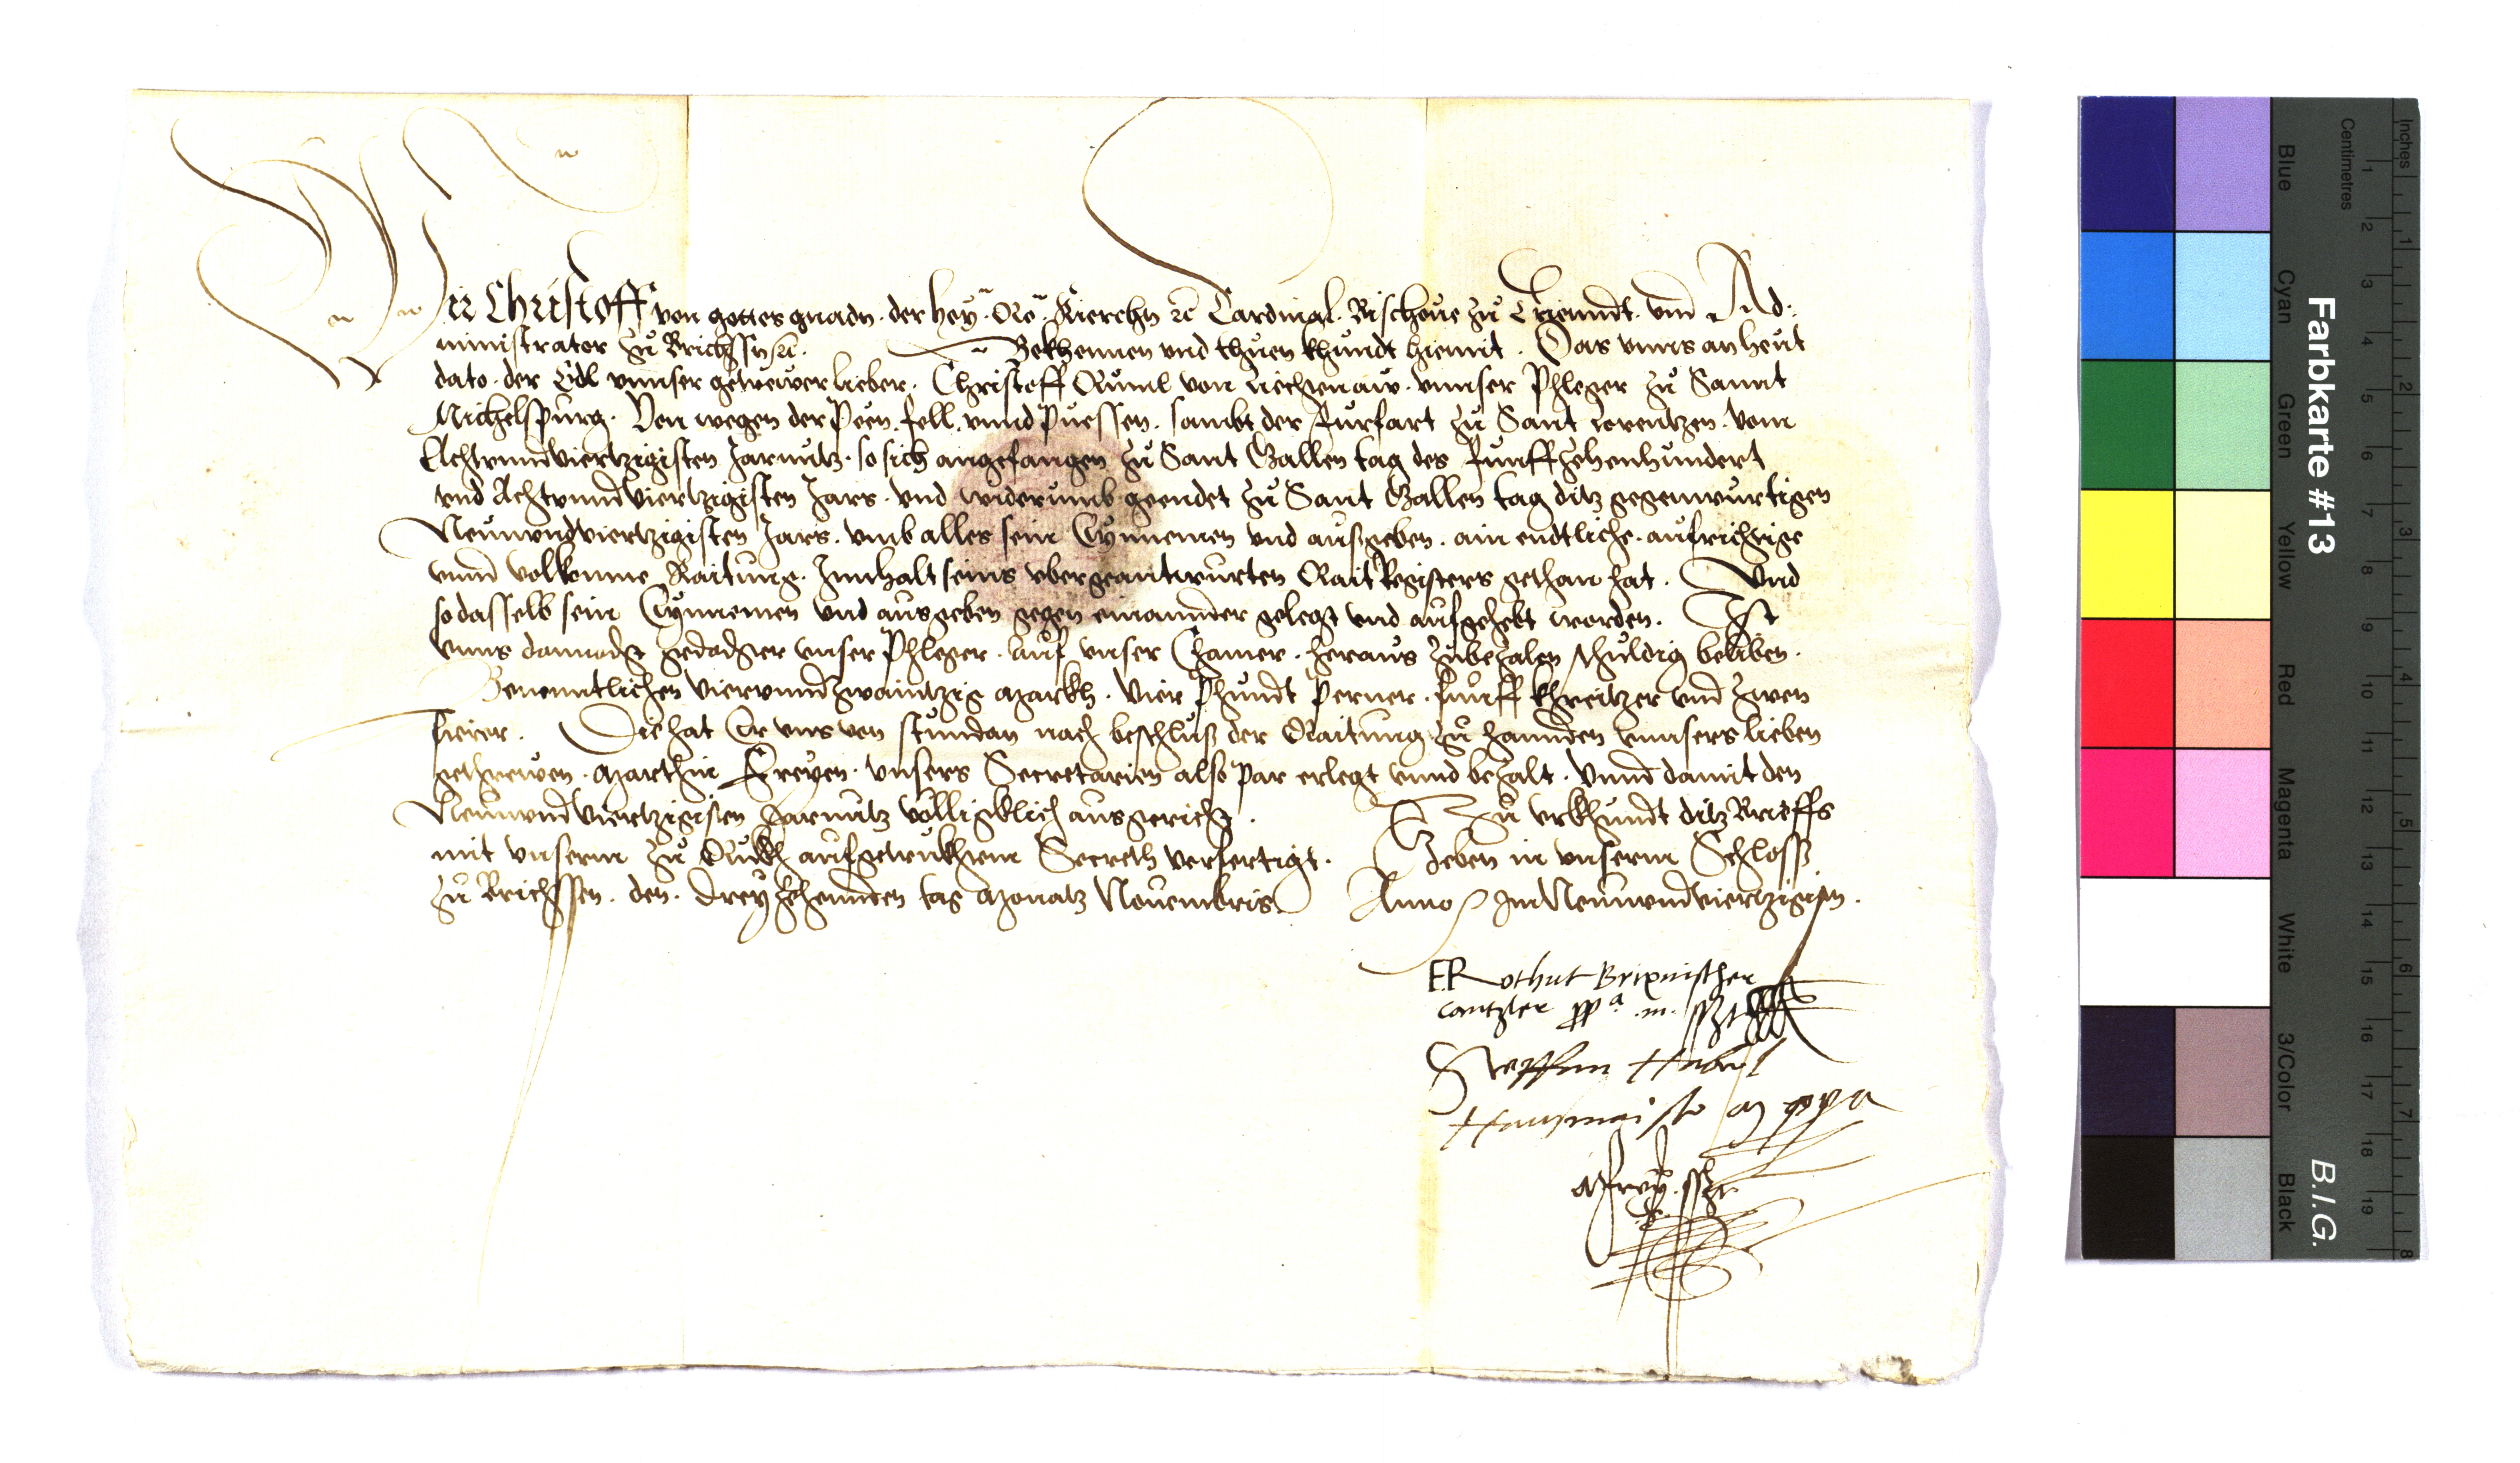 Wir Christoff von gottes gnadn. der Hey: Rö: Kierchn etc Cardinal. Bischoue zů Triendt. vnd Ad:
ministrator zů Brichssn etc. Bekhennen vnd thůen khundt hiemit. Das vnns an heut
dato. der Edl vnnser getrewer lieber. Christoff Růml von Liechtenaw. vnnser Phleger zů Sannt
Michelspurg. Von wegen der Peen. fell. vnnd Půessen. sambt der Furfart zů Sant Lorentzen. vom
Achtvnndviertzigisten Jarnutz. so sich angefangen zů Sant Gallen tag des Funffzehenhundert
vnd Achtvnndviertzigisten Jars. vnd widerumb geendet zů Sant Gallen tag ditz gegenwurtigen
Neunvndviertzigisten Jars. vmb alles sein Eynnemen vnd aufgeben. ain endtliche. aufrichtige
vnnd volkomne Raitung. Innhalt seins vbergeantwurten Rait Registers gethan hat. Vnd
so dasselb sein Eynnemen vnd ausgeben gegen einannder gelegt vnd aufgehebt worden. Ist
vnns dannocht gedachter vnser Phleger. auf vnser Chamer. heraus zubezalen schuldig beliben.
Benenntlichen Viervnndzwaintzig Markh. Vier Phundt Perner. funff khreitzer vnd zwen
fierer. Die hat Er vns von stundan nach beschluß der Raitung zů hannden vnnsers lieben
gethrewen. Marthin Freyen. vnsers Secretarien also par erlegt vnnd bezalt. Vnnd damit den
Neunvndviertzigisten Jarnutz völligklich ausgericht. Zu vrkhundt ditz Brieffs
mit vnserm zů Rukh aufgetrukhtem Secreth verfertigt. Geben in vnserm Schloss
zů Brichssen. den. Dreyzehennden tag Monatz Nouembris. Anno etc Im Neunvndviertzigistn.
E. Rothut Brixnischer
cantzler ppa .m. sszt
Steffan
Hausmaister M ppa
MFrey. sszt
Farbkarte #13
B.I.G.
Inches 1 2 3 4 5 6 7 8
Centimetres 1 2 3 4 5 6 7 8 9 10 11 12 13 14 15 16 17 18 19
Blue Cyan Green Yellow Red Magenta White 3/Color Black